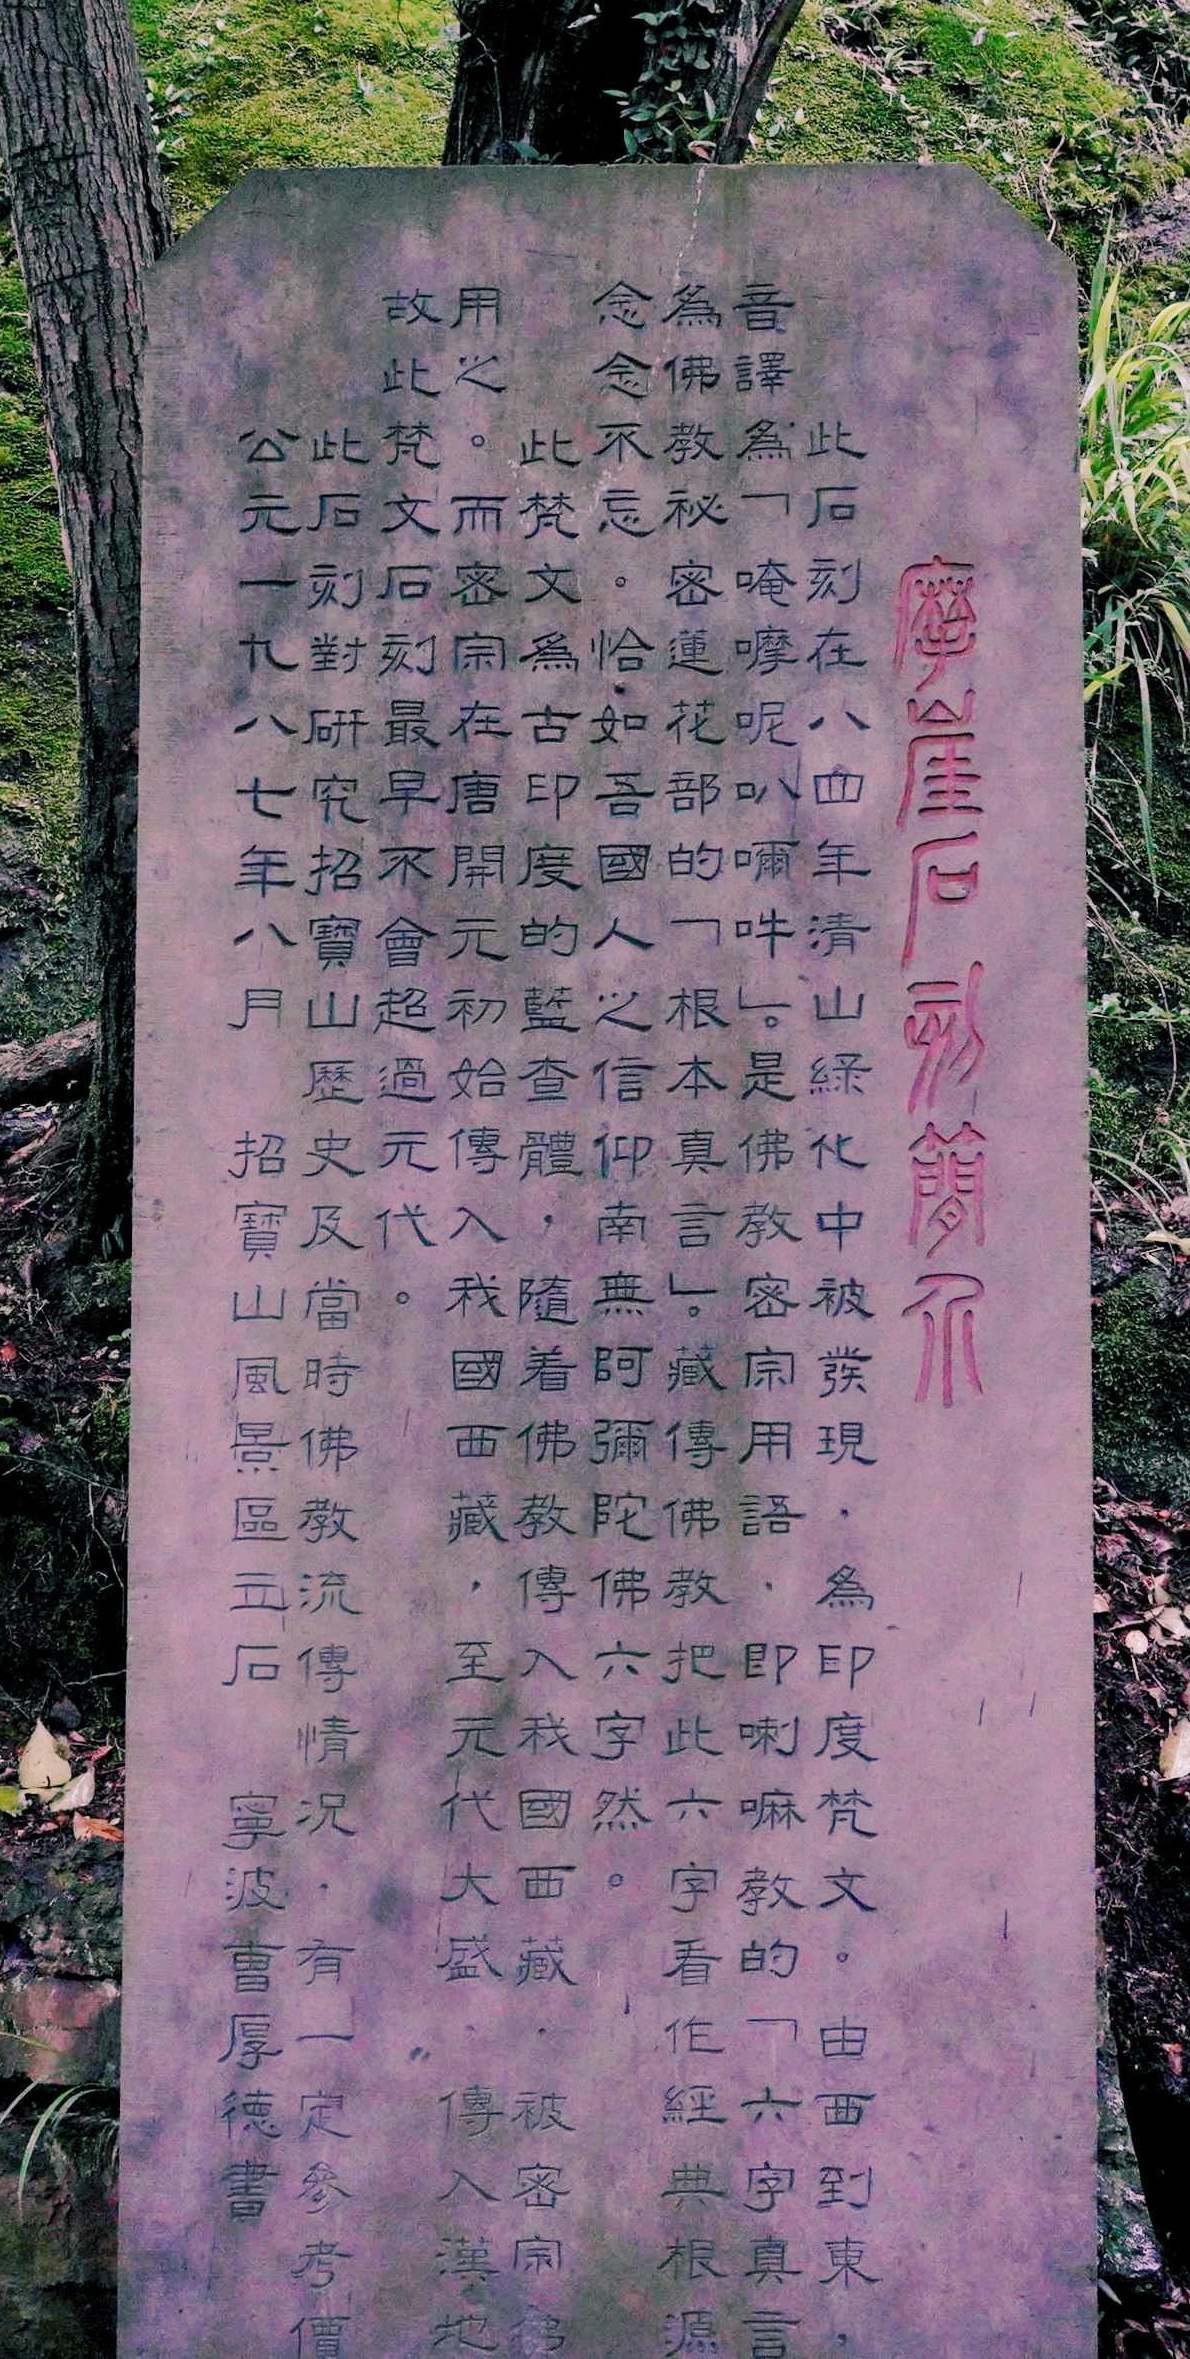 摩崖石刻簡介
此石刻在八四年清山綠化中被發現，為印度梵文。由西到東，
音譯為「唵嚤呢叭嚩吽」。是佛教密宗用語，即喇嘛教的「六字真言
為佛教祕密蓮花部的「根本真言」。藏傳佛教把此六字看作經典根源
念念不忘。恰如吾國人之信仰南無阿彌陀佛六字然。
此梵文為古印度的藍查體，隨着佛教傳入我國西藏，被密宗
用之。而密宗在唐開元初始傳入我國西藏，至元代大盛，傳入漢地
故此梵文石刻最早不會超過元代。
此石刻對研究招寶山歷史及當時佛教流傳情況，有一定參考價
公元一九八七年八月 招寶山風景區立石 寧波曹厚德書